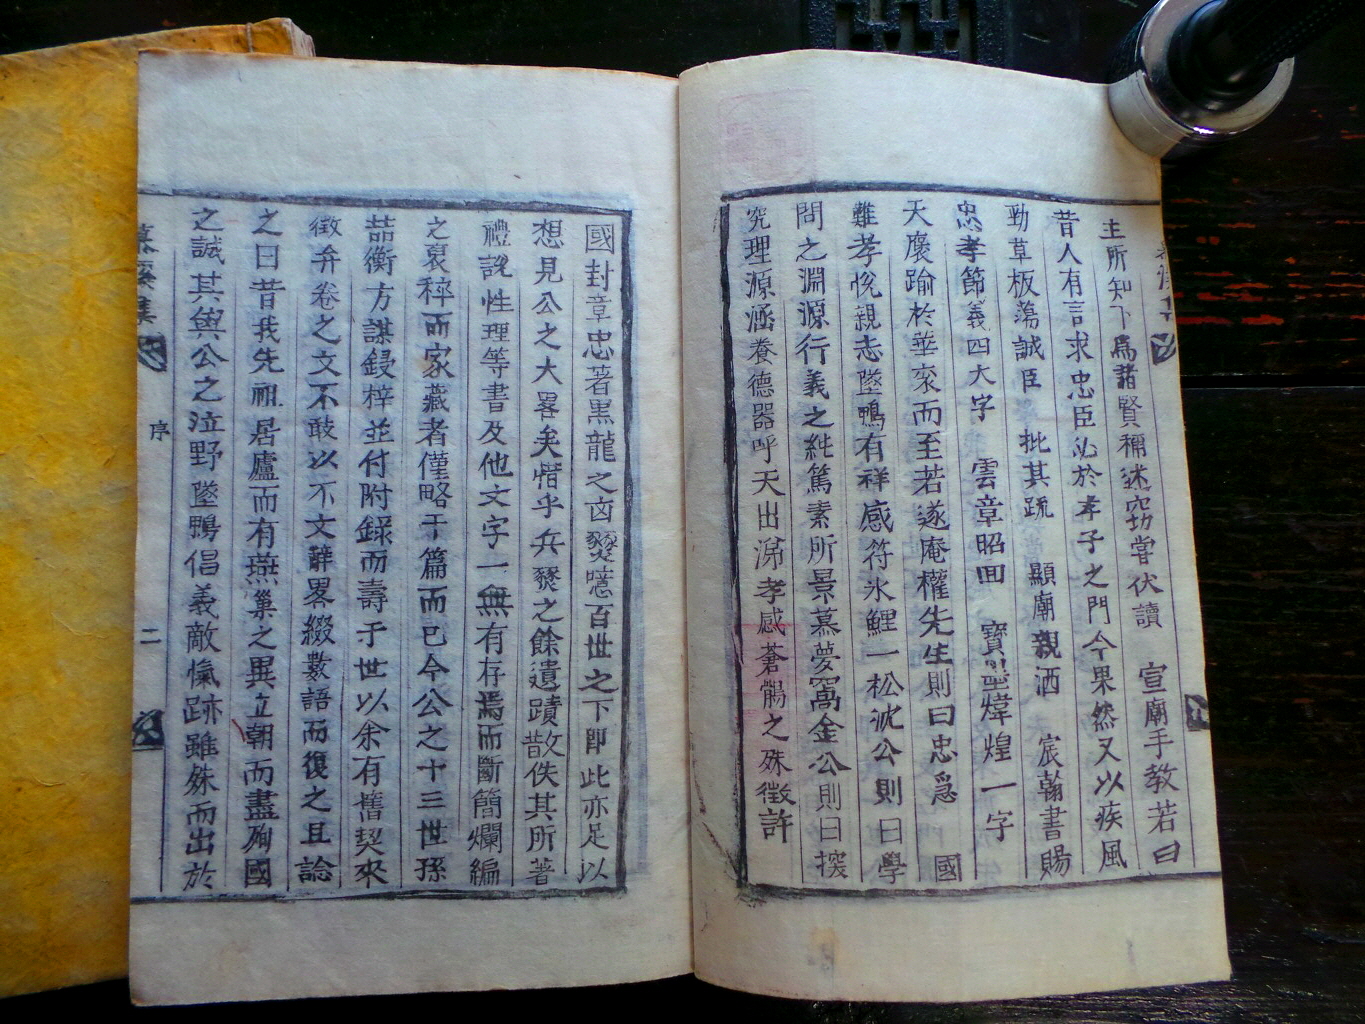 主所知下爲諸賢稱述窃嘗伏讀 宣廟手教若曰
昔人有言求忠臣必於孝子之門今果然又以疾風
勁草板蕩誠臣 批其疏 顯廟親洒 宸翰書賜
忠孝節義四大字 雲章昭回 寶墨煒煌一字
天褒踰於華衮而至若遂庵權先生則曰忠爲 國
難孝悅親志墜鴨有祥感符氷鯉一松沈公則曰學
問之淵源行義之純篤素所景慕夢窩金公則曰探
究理源涵養德器呼天出涕孝感蒼鶻之殊徵許
國封章忠著黑龍之凾燹噫百世之下卽此亦足以
想見公之大畧矣惜乎兵燹之餘遺蹟散佚其所著
禮說性理等書及他文字一無有存焉而斷簡爛編
之裒稡而家藏者僅略干篇而已今公之十三世孫
喆衡方謀鋟梓並付附錄而壽于世以余有舊契來
徵弁卷之文不敢以不文辭畧綴數語而復之且諗
之曰昔我先祖居廬而有燕巢之異立朝而盡殉國
之誠其與公之泣野墜鴨倡義敵愾跡雖殊而出於
序
二